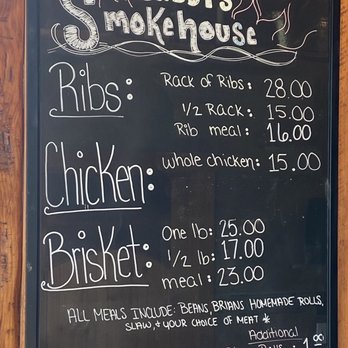 Smokehouse
Ribs:
Rack of Ribs: 28.00
1/2 Rack: 15.00
Rib meal: 16.00
Chicken:
whole chicken: 15.00
Brisket:
One lb: 25.00
1/2 lb: 17.00
meal: 23.00
ALL MEALS INCLUDE: BEANS, BRIANS HOMEMADE ROLLS,
SLAW, & YOUR CHOICE OF MEAT *
Additional